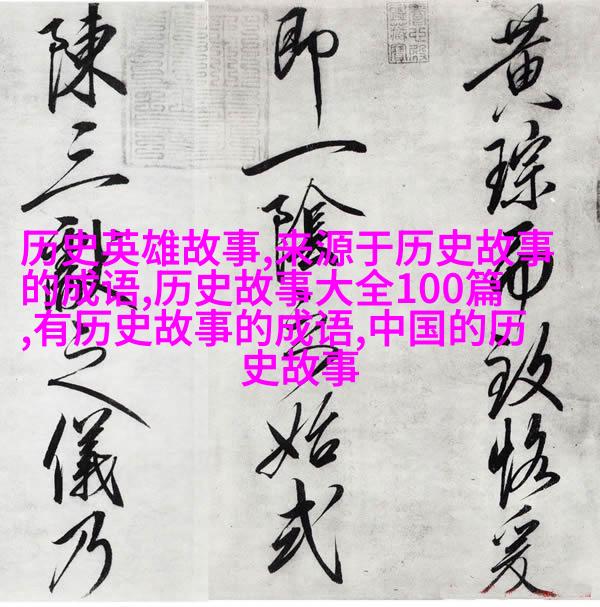 黄琮而致恪爰
即一陰始式
陳三獻之儀乃
历史英雄故事,来源于历史故事
的成语,历史故事大全100篇
,有历史故事的成语,中国的历
史故事